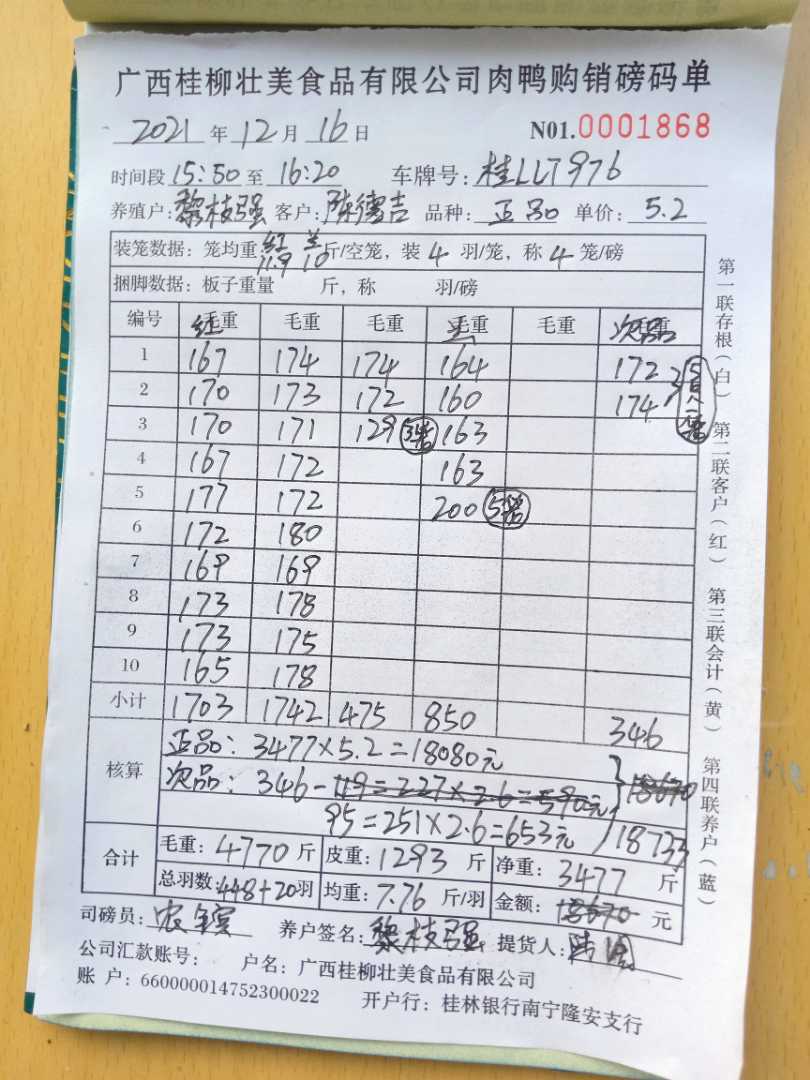 广西桂柳壮美食品有限公司肉鸭购销磅码单
2021 年 12 月 16 日 N01.0001868
时间段 15:50 至 16:20 车牌号: 桂LLT976
养殖户: 黎枝强 客户: 陈德吉 品种: 正品 单价: 5.2
装笼数据: 笼均重 红11.9 兰10 斤/空笼, 装 4 羽/笼, 称 4 笼/磅
捆脚数据: 板子重量 斤, 称 羽/磅
编号 红毛重 毛重 毛重 兰毛重 毛重 次品
1 167 174 174 164 172
2 170 173 172 160 174
3 170 171 129 3笼 163
4 167 172 163
5 177 172 200 5笼
6 172 180
7 169 169
8 173 178
9 173 175
10 165 178
小计 1703 1742 475 850 346
核算 正品: 3477×5.2=18080元
次品: 346-119=227×2.6=590元 18670
95=251×2.6=653元 18733
合计 毛重: 4770 斤 皮重: 1293 斤 净重: 3477 斤
总羽数: 448+20 羽 均重: 7.76 斤/羽 金额: 18670 元
司磅员: 养户签名: 黎枝强 提货人:
公司汇款账号: 户名: 广西桂柳壮美食品有限公司
账 户: 660000014752300022 开户行: 桂林银行南宁隆安支行
第一联存根(白) 第二联客户(红) 第三联会计(黄) 第四联养户(蓝)